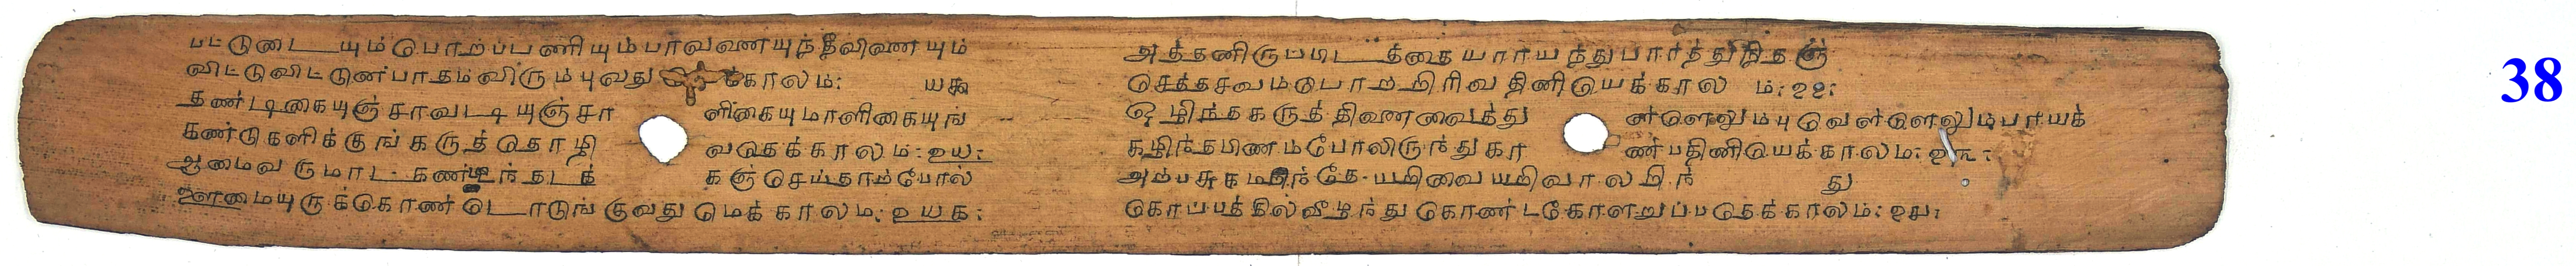 பட்டுடையும்பொற்ப்பணியும்பாவனையுந்தீவினையும்
விட்டுவிட்டுன்பாதம்விரும்புவது க்காலம்: ௰௯
தண்டிகையுஞ்சாவடியுஞ்சா ளிகையுமாளிகையுங்
கண்டுகளிக்குங்கருத்தொழி வதெக்காலம்: ௨௰:
ஆமைவருமாட் கண்டைந்தடக் கஞ்செய்தாம்போல்
ஊமையுருக்கொண்டொடுங்குவதுமெக்காலம்: ௨௰௧:
அத்தனிருப்பிடத்தையாராய்ந்துபார்த்துநிதஞ்
செத்தசவம்போற்றிரிவதினியெக்கால ம்: ௨௨:
ஒழிந்தகருத்தினைவைத்து ள்ளெலும்புவெள்ளெலும்பாயக்
கழிந்தபிணம்போலிருந்துகா ண்பதினியெக்காலம்: ௨௩:
கொப்பத்தில்வீழ்ந்துகொண்டகோளறுப்பதெக்காலம்: ௨௪:
38